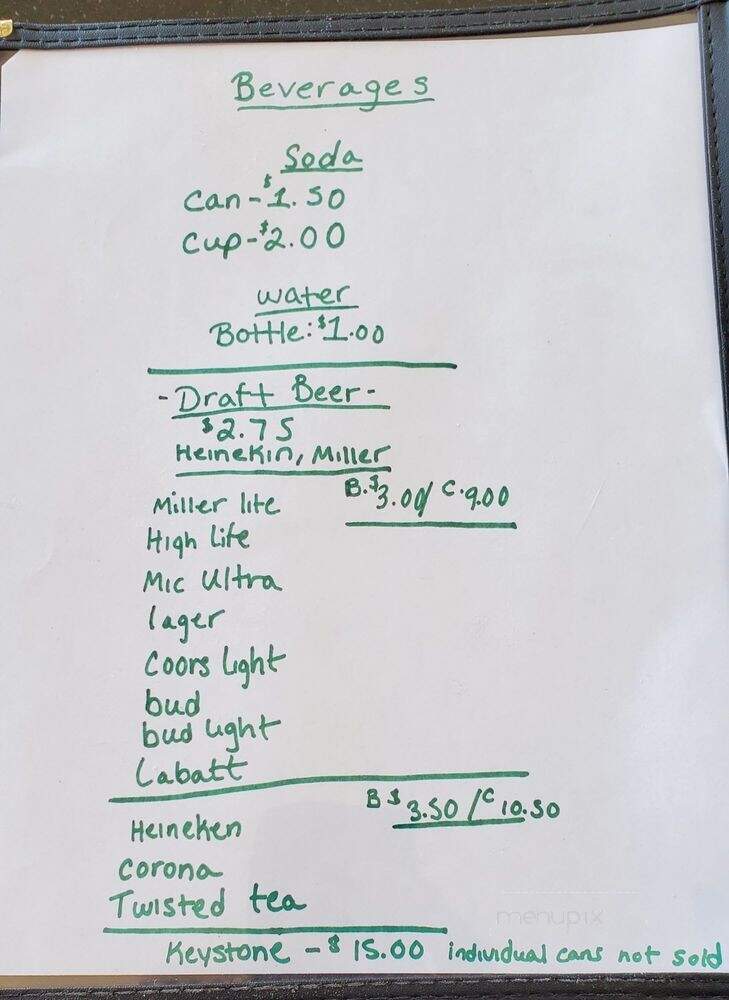 Beverages
Soda
Can - $1.50
Cup - $2.00
water
Bottle: $1.00
- Draft Beer -
$2.75
Heinekin, Miller
Miller lite B. $3.00/ C. 9.00
High Life
Mic Ultra
lager
Coors Light
bud
bud light
Labatt
Heineken B $3.50 / C 10.50
Corona
Twisted tea
Keystone - $15.00 individual cans not sold
menupix